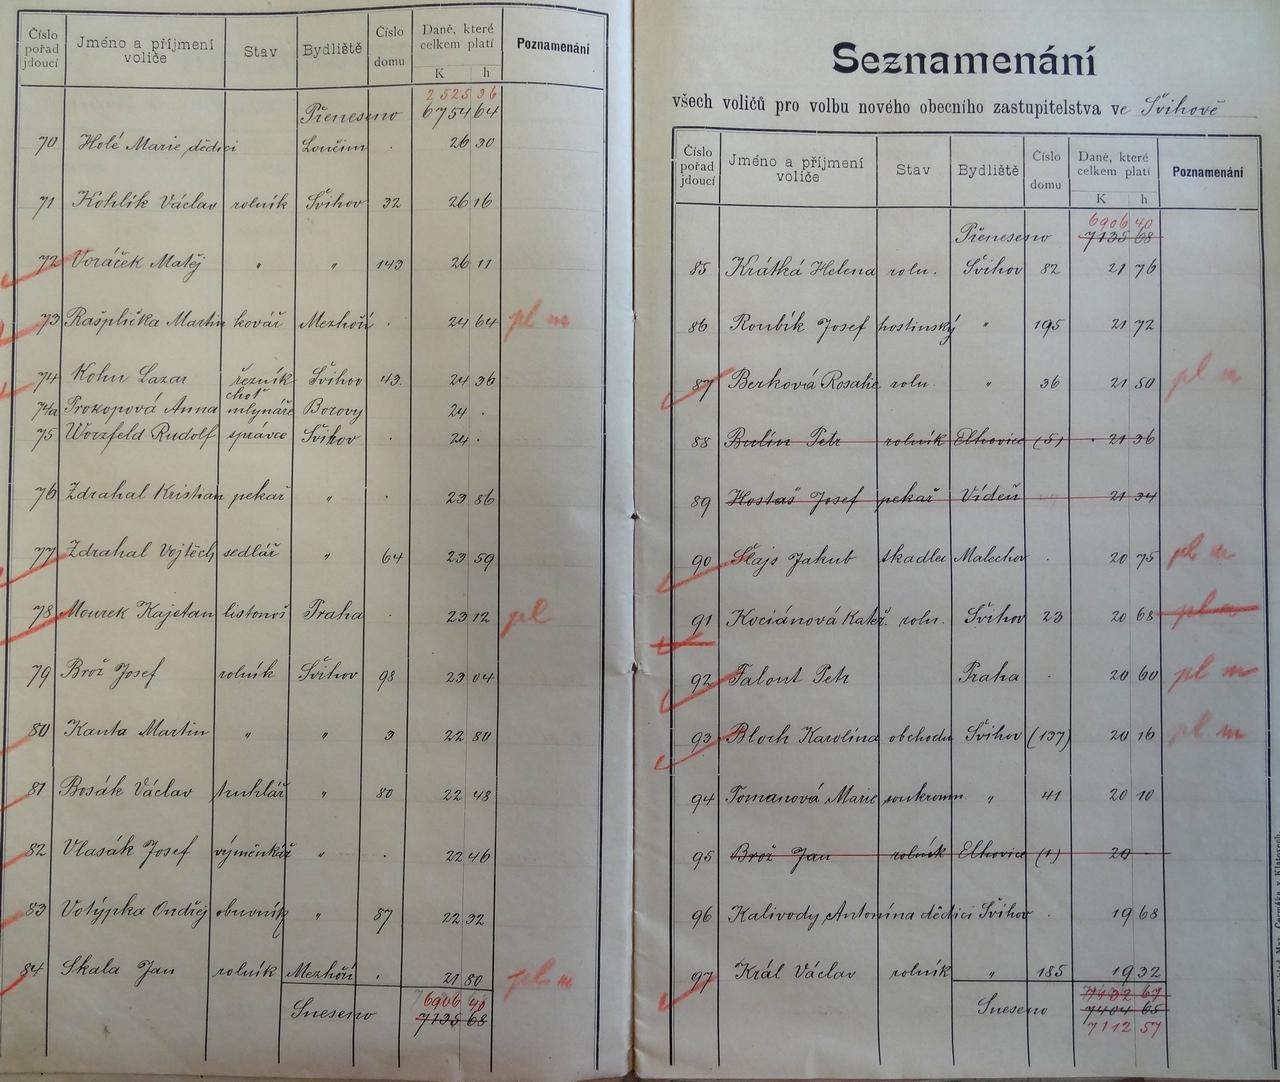 Číslo pořad jdoucí Jméno a příjmení voliče Stav Bydliště Číslo domu Daně, které celkem platí K h Poznamenání
2525 36
Přeneseno 6754 64
70 Holé Marie dědici Loučim . 26 30
71 Kohlík Václav rolník Švihov 32 26 16
72 Voráček Matěj " " 143 26 11
73 Rašplička Martin kovář Mezhoří . 24 64 pl m
74 Kohn Lazar řezník Švihov 43 24 36
74a Prokopová Anna choť mlynáře Borovy 24 .
75 Worzfeld Rudolf správce Švihov . 24 .
76 Zdrahal Kristian pekař " . 23 86
77 Zdrahal Vojtěch sedlář " 64 23 59
78 Mourek Kajetan listonoš Praha . 23 12 pl
79 Brož Josef rolník Švihov 98 23 04
80 Kanta Martin " " 3 22 80
81 Bosák Václav truhlář " 80 22 48
82 Vlasák Josef výměnkář " . 22 46
83 Votýpka Ondřej obuvník " 87 22 32
84 Skala Jan rolník Mezhoří . 21 80 pl m
6906 40
Sneseno 7135 68
Seznamenání
všech voličů pro volbu nového obecního zastupitelstva ve Švihově
Číslo pořad jdoucí Jméno a příjmení voliče Stav Bydliště Číslo domu Daně, které celkem platí K h Poznamenání
6906 40
Přeneseno 7135 68
85 Krátká Helena roln. Švihov 82 21 76
86 Roubík Josef hostinský " 195 21 72
87 Berková Rosalie roln. " 36 21 50 pl m
88 Bulín Petr rolník Elhovice (5) . 21 36
89 Hostaš Josef pekař Vídeň 21 34
90 Šlajs Jakub skadlec Malechov . 20 75 pl m
91 Kociánová Kateř. roln. Švihov 23 20 68 pl m
92 Talout Petr Praha . 20 60 pl m
93 Bloch Karolína obchodn Švihov (137) 20 16 pl m
94 Tomanová Marie soukromn. " 41 20 10
95 Brož Jan rolník Elhovice (1) 20 -
96 Kalivody Antonína dědici Švihov . 19 68
97 Král Václav rolník " 185 19 32
7132 67
Sneseno 7404 65
7112 57